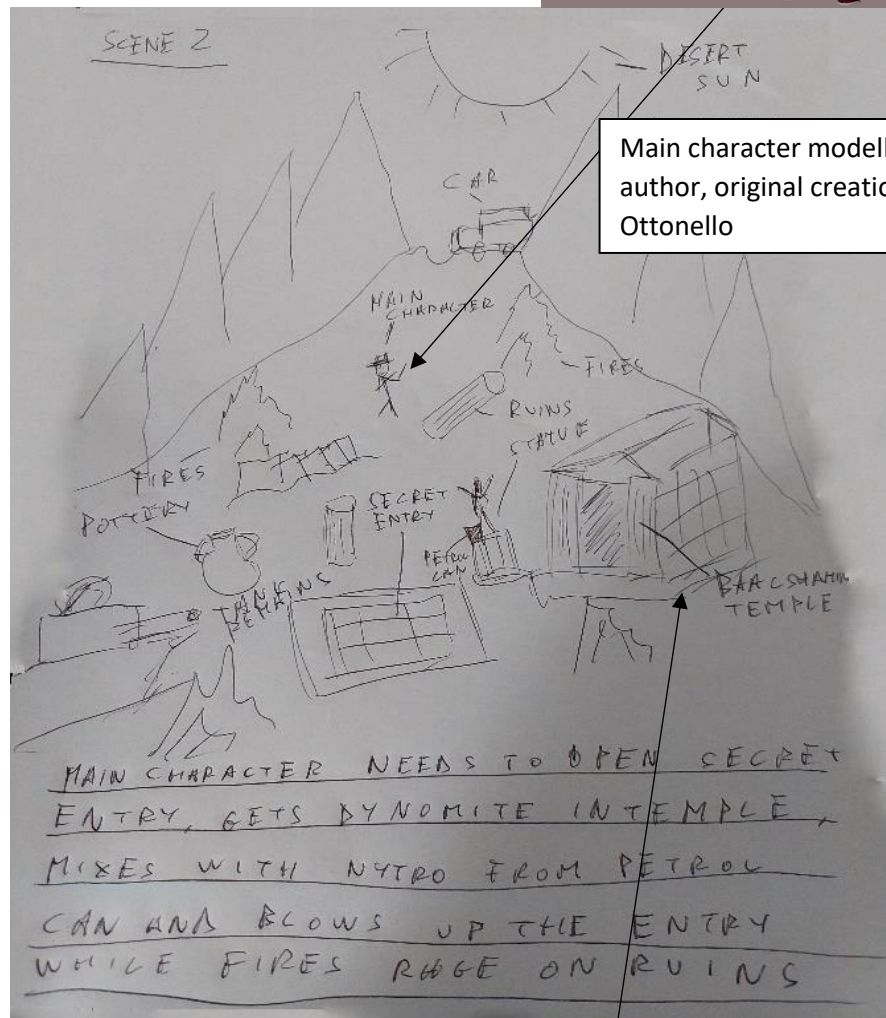 SCENE 2
DESERT
SUN
Main character modell
author, original creatio
Ottonello
CAR
MAIN
CHARACTER
FIRES
RUINS
STATUE
FIRES
POTTERY
SECRET
ENTRY
PETROL
CAN
TANK
REMAINS
BAALSHAMIN
TEMPLE
MAIN CHARACTER NEEDS TO OPEN SECRET
ENTRY, GETS DYNOMITE IN TEMPLE,
MIXES WITH NYTRO FROM PETROL
CAN AND BLOWS UP THE ENTRY
WHILE FIRES RAGE ON RUINS